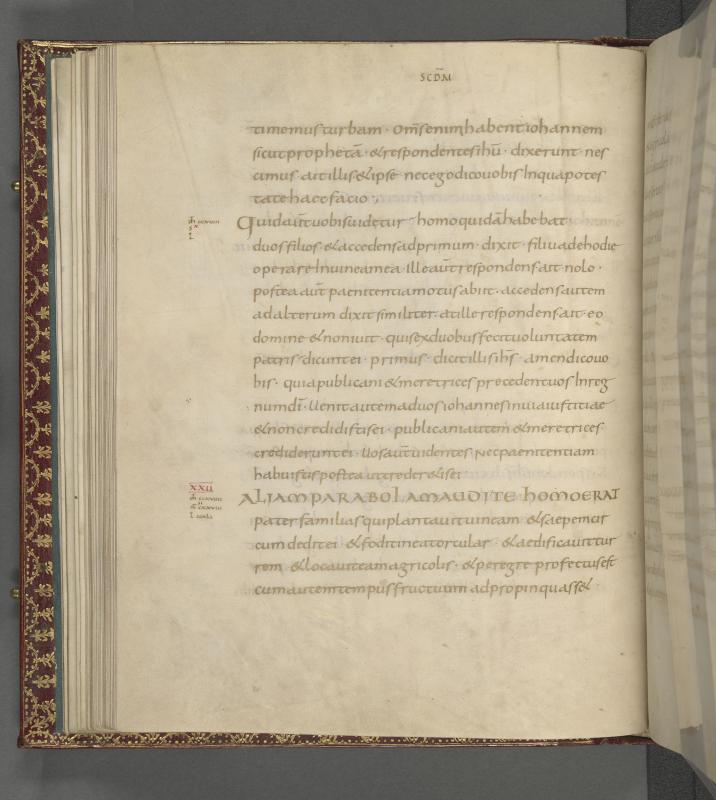 SCDM
timemus turbam · Oms̄ enim habent iohannem
sicut prophetā · & respondentes ihū · dixerunt · nes
cimus · ait illis & ipse nec ego dico uobis In qua potes
tate haec facio ·,
Quid aūt uobis uidetur · homo quidā habebat
duos filios · & accedens ad primum · dixit · fili uade hodie
operare In uinea mea · Ille aūt respondens ait · nolo ·
postea aūt paenitentia motus abiit · accedens autem
ad alterum dixit similiter · at ille respondens ait · eo
domine & non iuit · quis ex duobus fecit uoluntatem
patris · dicunt ei · primus · dicit illis ihs̄ · amen dico uo
bis · quia publicani & meretrices precedent uos In reg
num dī · Uenit autem ad uos iohannes in uia iustitiae
& non credidistis ei · publicani autem & meretrices
crediderunt ei · Uos aūt uidentes Nec paenitentiam
habuistis postea ut creder&is ei
XXII
ALIAM PARABOLAM AUDITE hOMO ERAT
pater familias qui plantauit uineam · & saepem cir
cumdedit ei · & fodit in ea torcular · & aedificauit tur
rem · & locauit eam agricolis · & peregre profectus est
cum autem tempus fructuum adpropinquass&